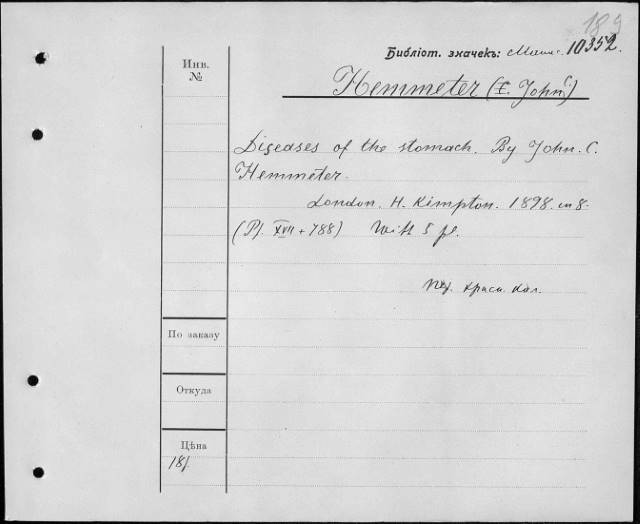 189
Библіот. значекъ: 10352.
Инв.
№
Hemmeter (I. John C.)
Diseases of the stomach. By John. C.
Hemmeter.
London. H. Kimpton. 1898. in 8.
(Pf. XVII + 788) With 5 pl.
По заказу
Откуда
Цѣна
18/.